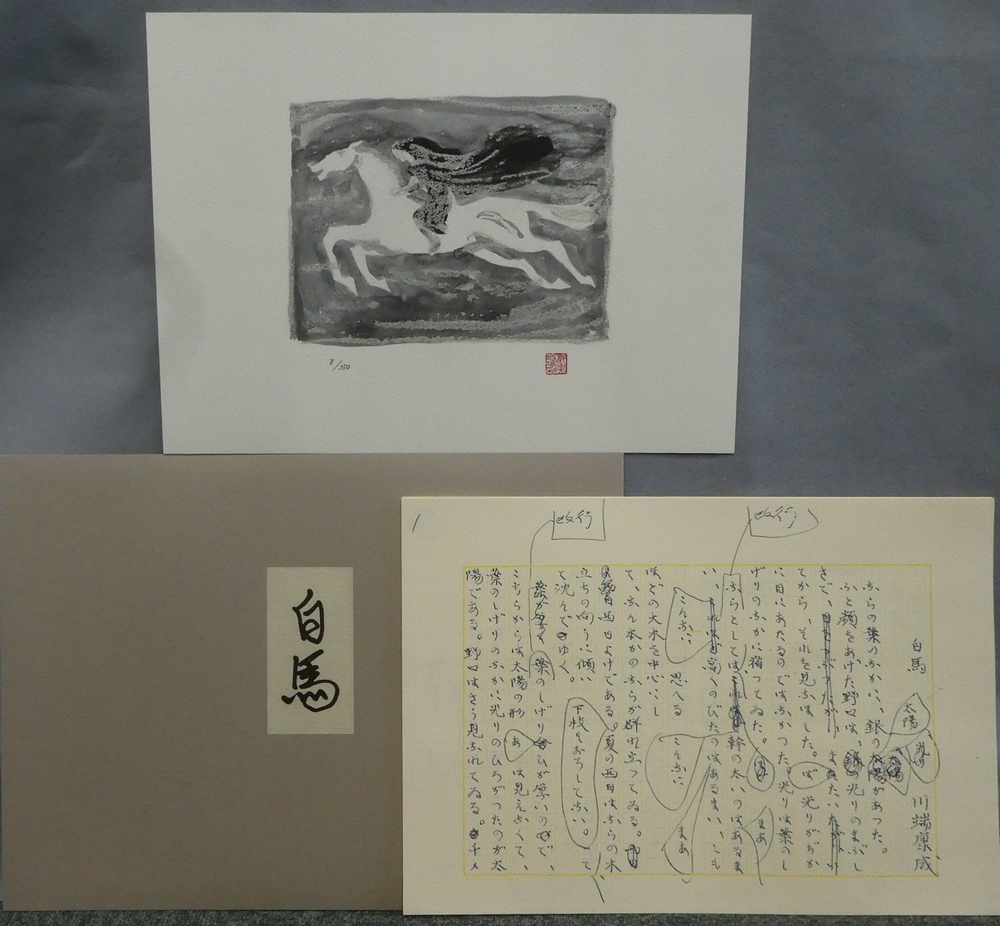 8/350
白馬
1
改行
改行
白馬
川端康成
ならの葉のなかに、銀の太陽があった。
ふと顔をあげた野口は、銀の光りのまぶし
さで、
てから、それを見なほした。光りがぢか
に目にあたるのではなかつた。光りは葉のし
げりのなかに宿つてゐた。
ならとしては
幹の太いのはあるま
い、
のびたのはあるまい、
こんなに
思へる
ほどの大木を中心にし
て、なん本かのならが群れ立つてゐる。
西日よけである。夏の西日はならの木
立ちの向うに傾い
下枝をおろしてない。
て沈んでゆく。
葉のしげり
が厚いので、
こちらからは太陽の形
は見えなくて、
葉のしげりのなかに光りのひろがつたのが太
陽である。野口はさう見なれてゐる。千メ
太陽
こんなに
まあ
まあ